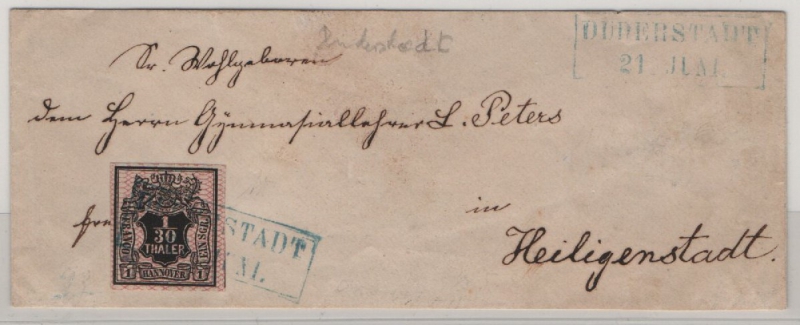 Duderstadt
DUDERSTADT
21 JUNI
Sr. Wohlgeboren
dem Herrn Gymnasiallehrer L. Peters
in
Heiligenstadt.
1
30
THALER
EIN SGR.
1 HANNOVER 1
STADT